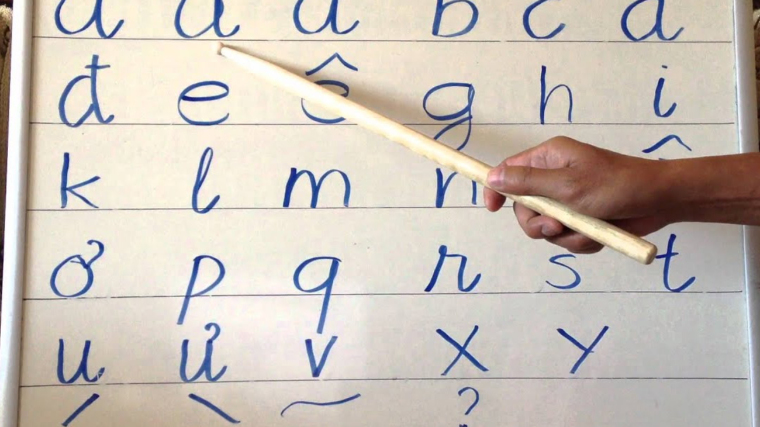 a a a b c d
đ e ê g h i
k l m n
ơ p q r s t
u ư v x y
/ \ ~ ?